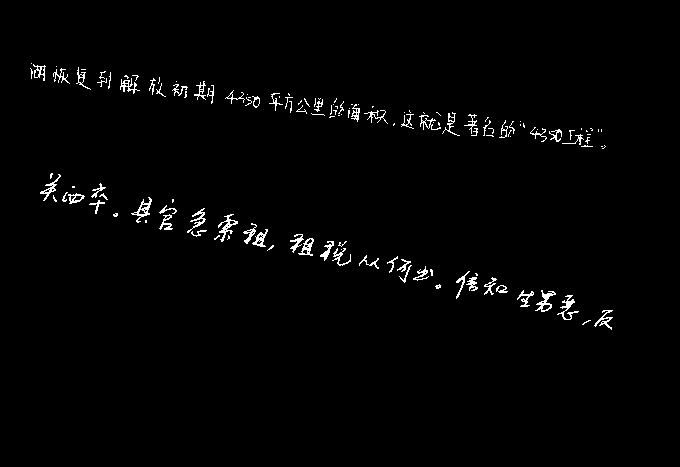 湖恢复到解放初期4350平方公里的面积，这就是著名的“4350工程”。
关西卒。县官急索租，租税从何出。信知生男恶，反